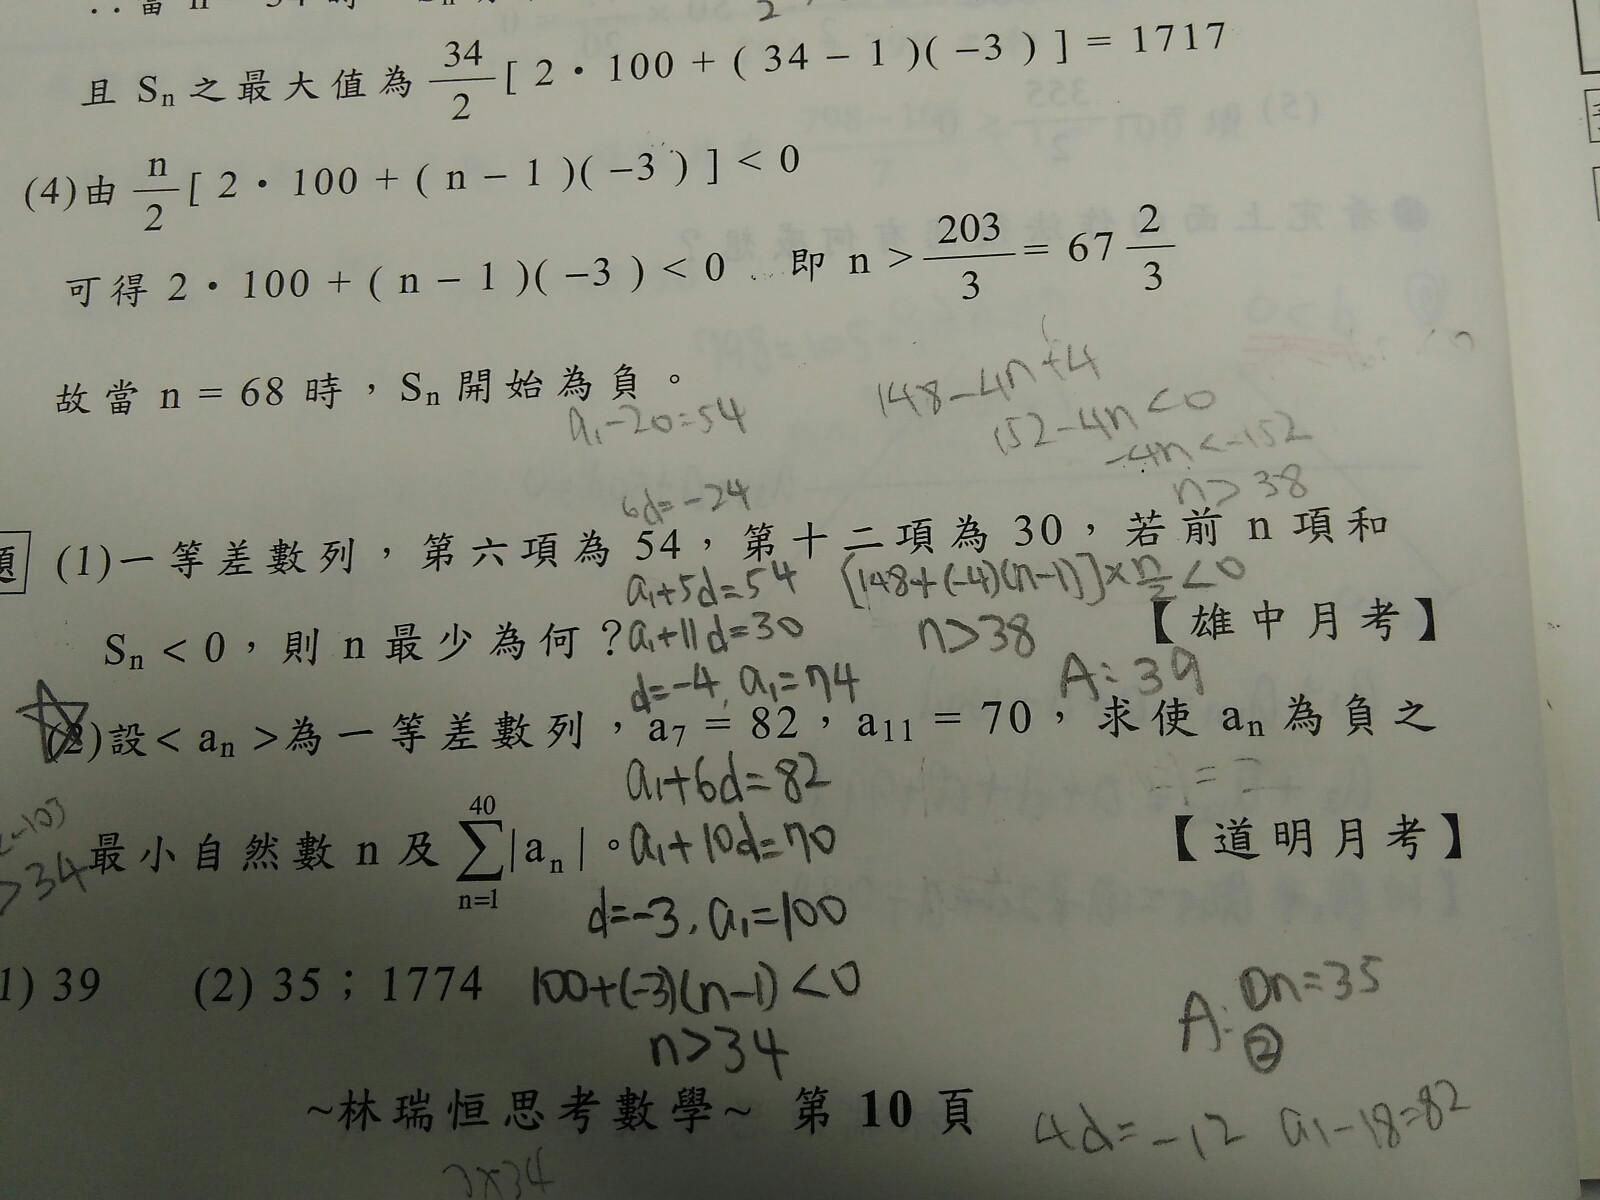 ∴當 n = 34 時，Sn
且 Sn 之最大值為 34/2 [ 2 · 100 + ( 34 − 1 )( −3 ) ] = 1717
(4)由 n/2 [ 2 · 100 + ( n − 1 )( −3 ) ] < 0
可得 2 · 100 + ( n − 1 )( −3 ) < 0 即 n > 203/3 = 67 2/3
故當 n = 68 時，Sn 開始為負。
148−4n+4
a1−20=54
152−4n<0
−4n<−152
n>38
6d=−24
題 (1)一等差數列，第六項為 54，第十二項為 30，若前 n 項和
a1+5d=54 [148+(−4)(n−1)]×n/2<0
Sn < 0，則 n 最少為何？ a1+11d=30 n>38 【雄中月考】
d=−4, a1=74 A: 39
(2)設< an >為一等差數列，a7 = 82，a11 = 70，求使 an 為負之
a1+6d=82
最小自然數 n 及 40 ∑ n=1 |an|。 a1+10d=70 【道明月考】
>34
d=−3, a1=100
1) 39 (2) 35；1774 100+(−3)(n−1)<0
n>34
A: ①n=35
②
~林瑞恒思考數學~ 第 10 頁
4d=−12 a1−18=82
3×34